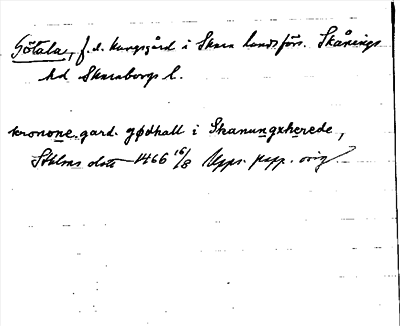 Götala, f.d. kungsgård i Skara landsförs. Skånings
hd Skaraborgs l.
kronone gard. gødhall i Skanungxherede,
Sthlms dotte 1466 16/8 Upps. papp. orig.